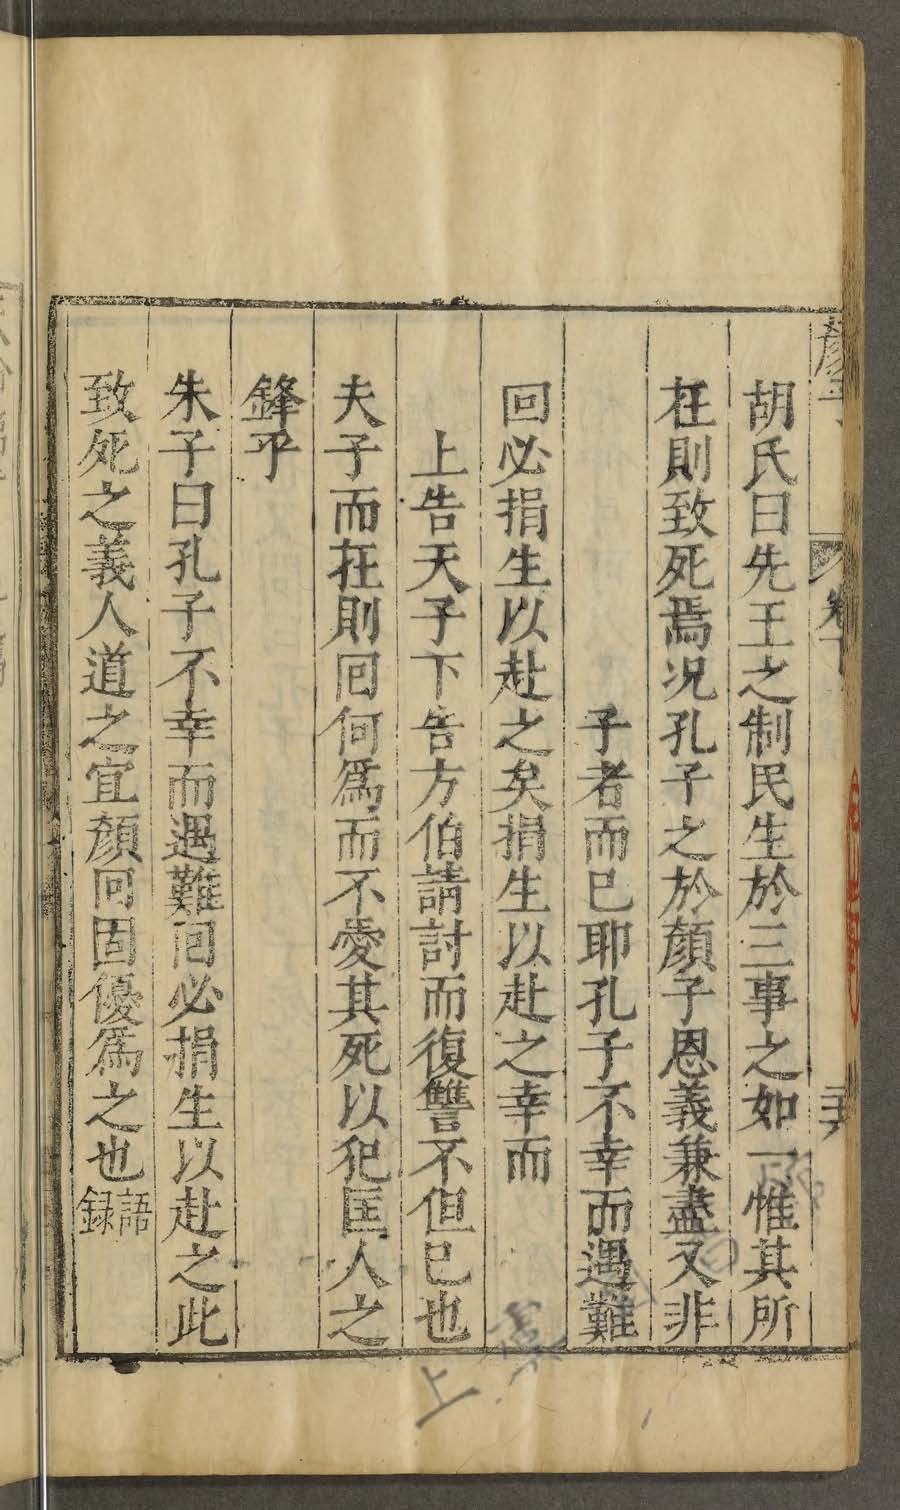 顏子 卷下 三十六
胡氏曰先王之制民生於三事之如一惟其所
在則致死焉況孔子之於顏子恩義兼盡又非
子者而已耶孔子不幸而遇難
回必捐生以赴之矣捐生以赴之幸而
上告天子下告方伯請討而復讐不但已也
夫子而在則回何爲而不愛其死以犯匡人之
鋒乎
朱子曰孔子不幸而遇難回必捐生以赴之此
致死之義人道之宜顏回固優爲之也語錄
上